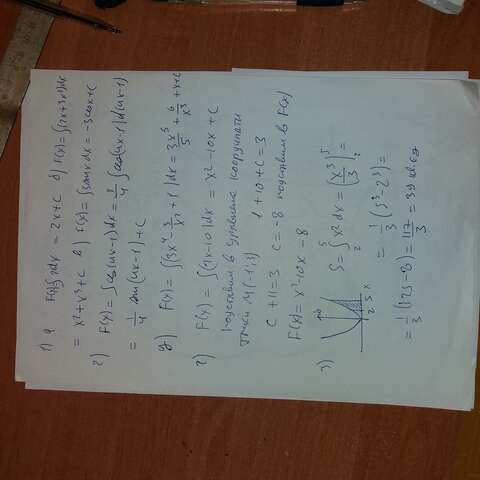 1) а F(x)∫7dx = 2x+C б) F(x)=∫(2x+3x²)dx
= x²+x³+C в) F(x)=∫3sinxdx = -3cosx+C
г) F(x)=∫cos(4x-1)dx = 1/4 ∫cos(4x-1)d(4x-1)
= 1/4 sin(4x-1)+C
F(x)=∫(3x⁴ - + 1)dx = 3x⁵/5 + 6/x³ + x + C
2) F(x)=∫(2x-10)dx = x²-10x+C
подставим в уравнение координаты
точки M(-1;3) 1+10+C=3
C+11=3 C=-8 подставим в F(x)
F(x)=x²-10x-8
3) S=∫₂⁵ x²dx = (x³/3)|₂⁵ =
2 5 x
= 1/3 (5³-2³) =
= 1/3 (125-8) = 117/3 = 39 кв ед